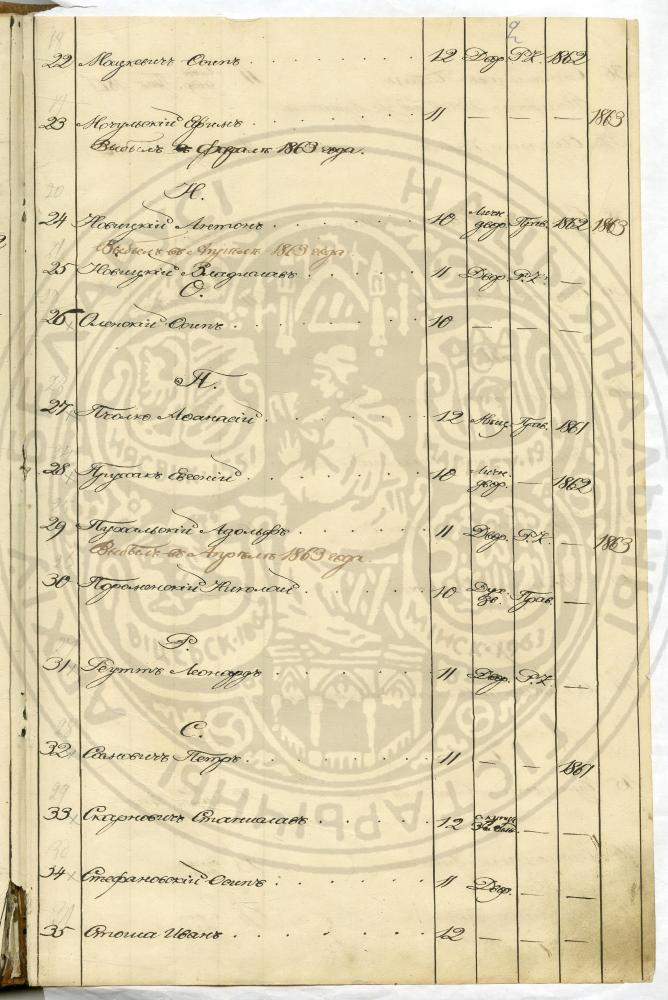 2
22 Мацкевичъ Осипъ 12 Двор. Р.К. 1862
23 Мочульскій Ефимъ 11 — — — 1863
Выбылъ въ февралѣ 1863 года.
Н.
24 Новицкій Антонъ 10 Личн. двор. Прав. 1862 1863
Выбылъ въ Апрѣлѣ 1863 года
25 Новицкій Владиславъ 11 Двор. Р.К. —
О.
26 Оленскій Осипъ 10 — — —
П.
27 Пчолко Афанасій 12 Прав. 1861
28 Прусакъ Евгеній 10 Личн. двор. — 1862
29 Пухальскій Адольфъ 11 Двор. Р.К. — 1863
Выбылъ въ Апрѣлѣ 1863 года.
30 Николай 10 Дух. зв. Прав. —
Р.
31 Реуттъ Леонардъ 11 Двор. Р.К. —
С.
32 Петръ 11 — — 1861
33 Станиславъ 12 — —
34 Стефановскій Осипъ 11 Двор. — —
35 Стоша Иванъ 12 — — —
МІНСК·1963